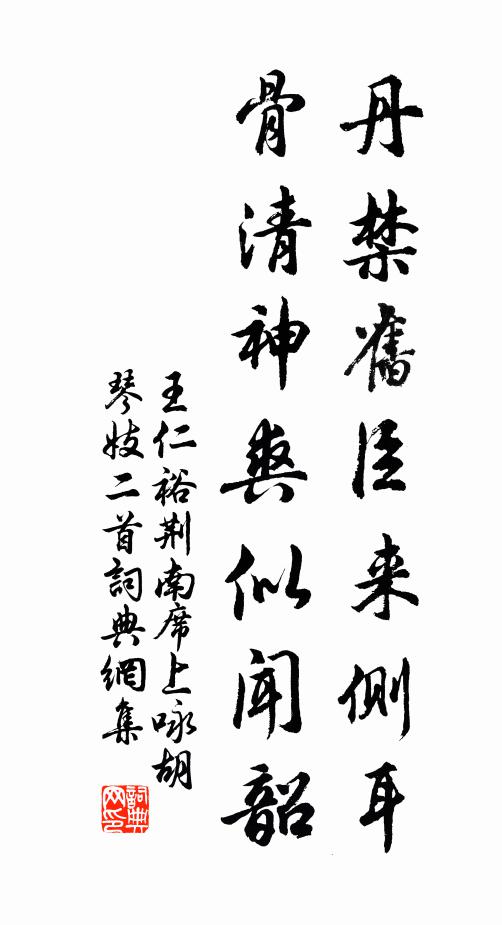 丹禁舊臣来側耳
骨清神爽似聞韶
王仁裕荆南席上咏胡
琴妓二首詞典網集
詞典
网印